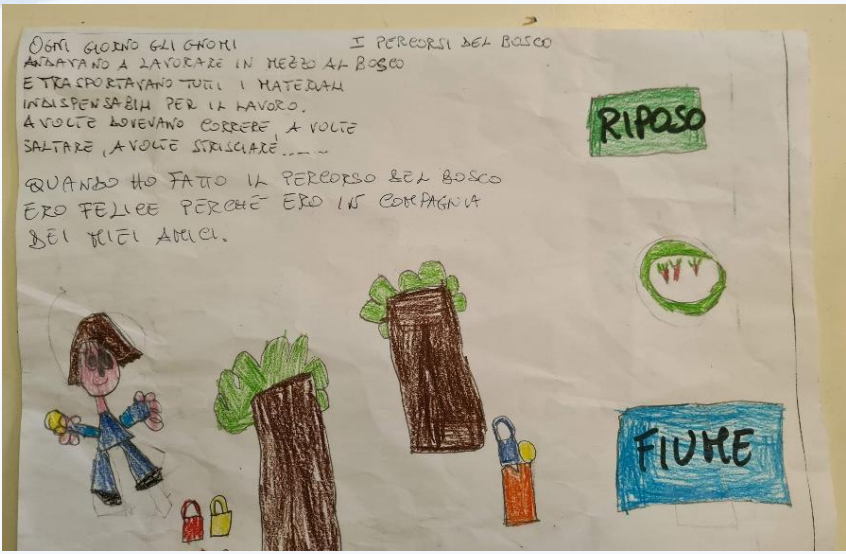 I PERCORSI DEL BOSCO
OGNI GIORNO GLI GNOMI
ANDAVANO A LAVORARE IN MEZZO AL BOSCO
E TRASPORTAVANO TUTTI I MATERIALI
INDISPENSABILI PER IL LAVORO.
A VOLTE DOVEVANO CORRERE, A VOLTE
SALTARE, A VOLTE STRISCIARE......
QUANDO HO FATTO IL PERCORSO DEL BOSCO
ERO FELICE PERCHÉ ERO IN COMPAGNIA
DEI MIEI AMICI.
RIPOSO
FIUME